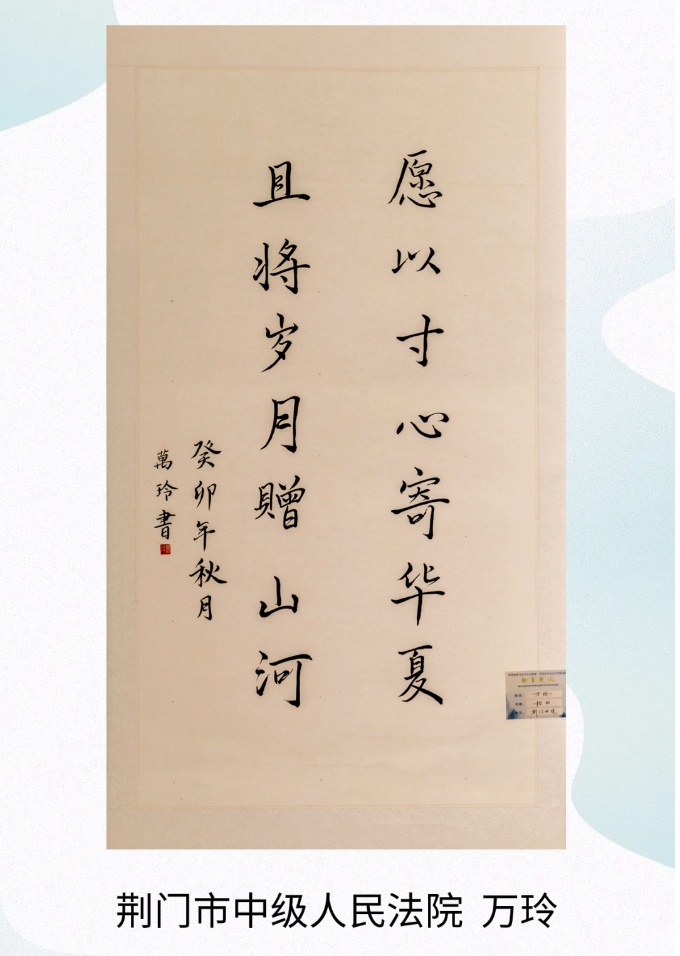 愿以寸心寄华夏
且将岁月赠山河
癸卯年秋月
萬玲書
荆门市中级人民法院 万玲